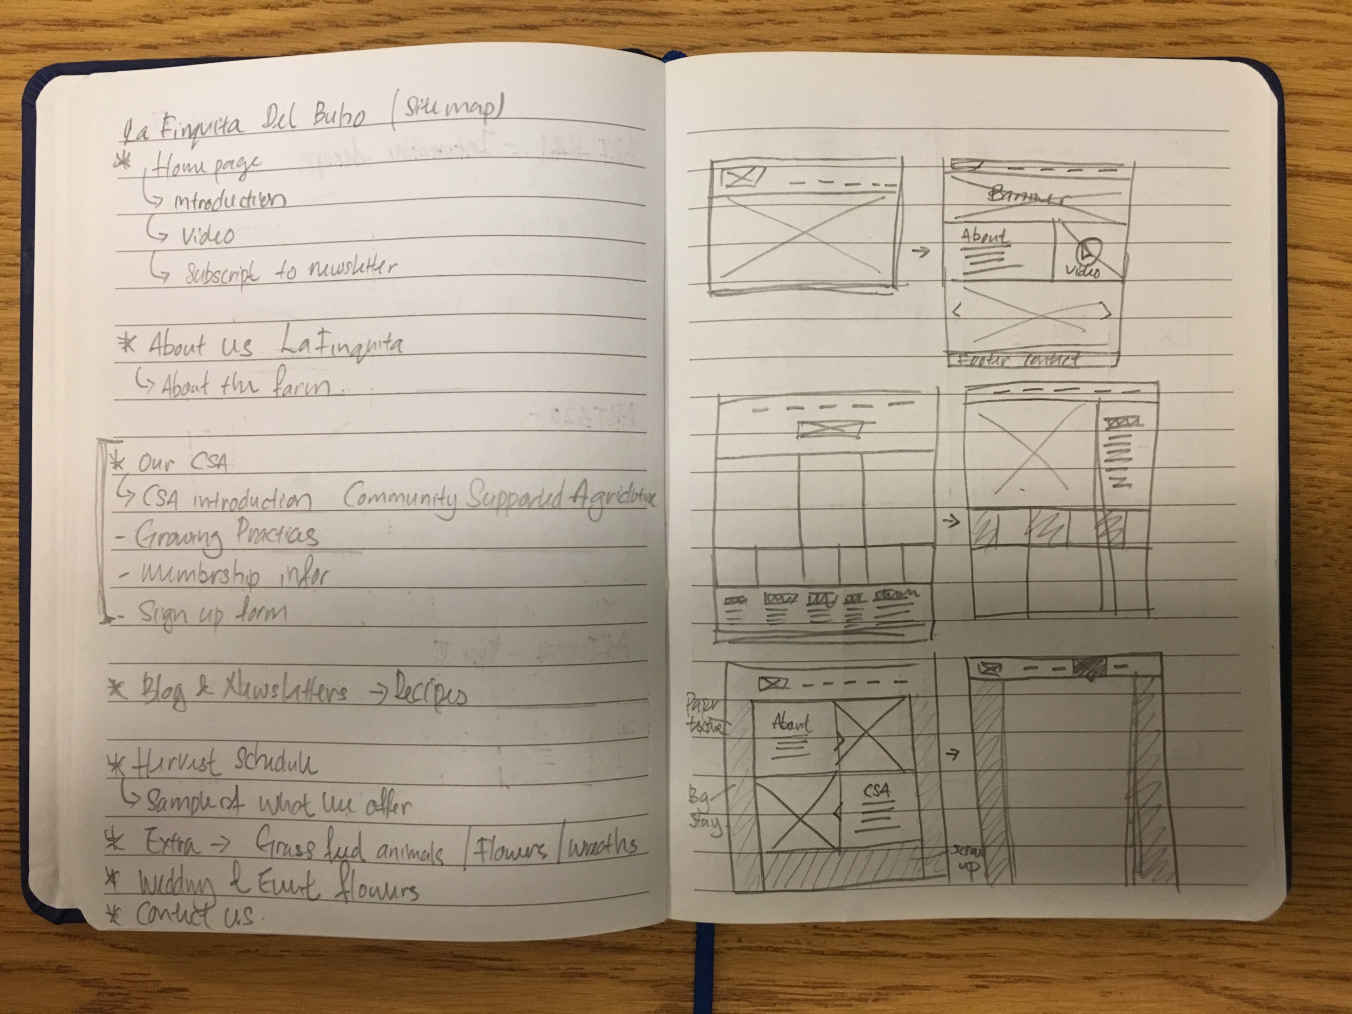 La Finquita Del Buho (Sitemap)
* Home page
↳ introduction
↳ Video
↳ Subscript to newsletter
* About us La Finquita
↳ About the farm.
* Our CSA
↳ CSA introduction Community Supported Agriculture
- Growing Practices
- Membership infor
- Sign up form
* Blog & Newsletters → Recipes
* Harvest Schedule
↳ Sample of what we offer
* Extra → Grass fed animals / Flowers / wreaths
* Wedding & Event flowers
* Contact us.
Banner
About
Video
Footer Contact
Paper
About
Bg
stay
CSA
up